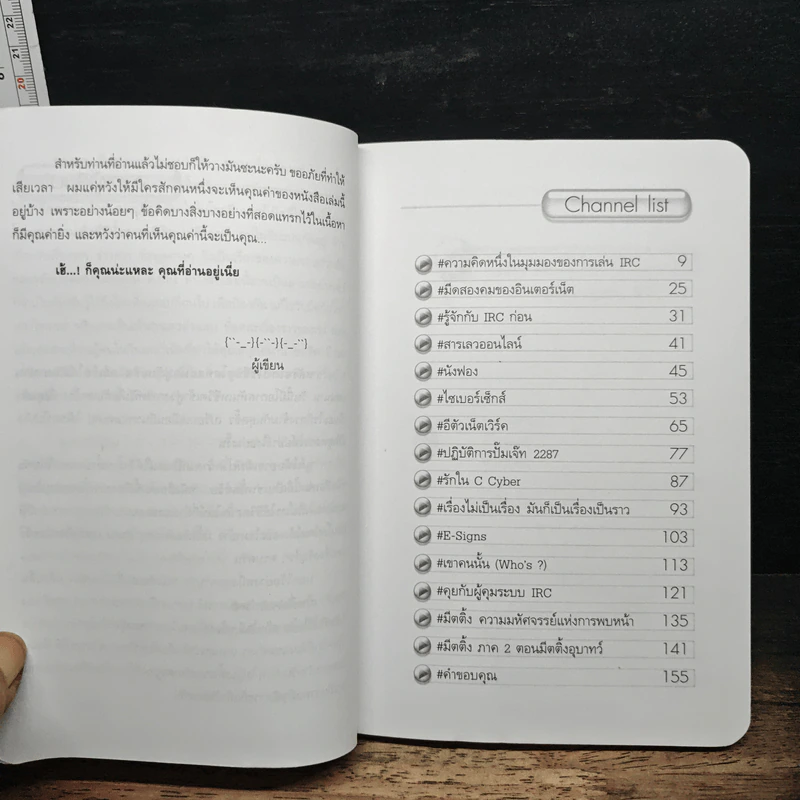 สำหรับท่านที่อ่านแล้วไม่ชอบก็ให้วางมันซะนะครับ ขออภัยที่ทำให้
เสียเวลา ผมแค่หวังให้มีใครสักคนหนึ่งจะเห็นคุณค่าของหนังสือเล่มนี้
อยู่บ้าง เพราะอย่างน้อยๆ ข้อคิดบางสิ่งบางอย่างที่สอดแทรกไว้ในเนื้อหา
ก็มีคุณค่ายิ่ง และหวังว่าคนที่เห็นคุณค่านี้จะเป็นคุณ...
เฮ้...! ก็คุณน่ะแหละ คุณที่อ่านอยู่เนี่ย
{``-_-}{-``-}{-_-``}
ผู้เขียน
Channel list
#ความคิดหนึ่งในมุมมองของการเล่น IRC 9
#มีดสองคมของอินเตอร์เน็ต 25
#รู้จักกับ IRC ก่อน 31
#สารเลวออนไลน์ 41
#นังฟอง 45
#ไซเบอร์เซ็กส์ 53
#อีตัวเน็ตเวิร์ค 65
#ปฏิบัติการปั๊มเจ๊ท 2287 77
#รักใน C Cyber 87
#เรื่องไม่เป็นเรื่อง มันก็เป็นเรื่องเป็นราว 93
#E-Signs 103
#เขาคนนั้น (Who's ?) 113
#คุยกับผู้คุมระบบ IRC 121
#มีตติ้ง ความมหัศจรรย์แห่งการพบหน้า 135
#มีตติ้ง ภาค 2 ตอนมีตติ้งอุบาทว์ 141
#คำขอบคุณ 155
22
21
20